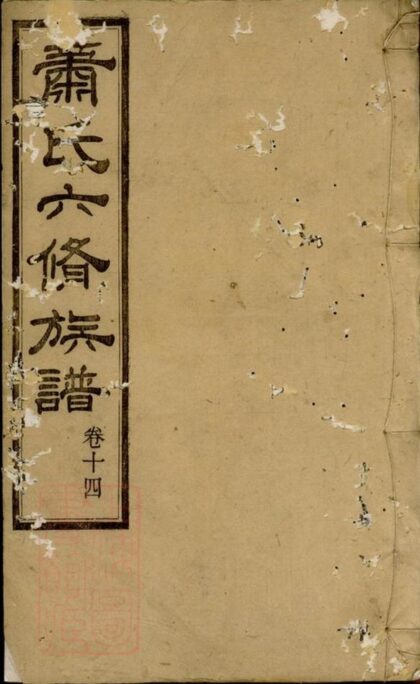 蕭氏六修族譜
卷十四